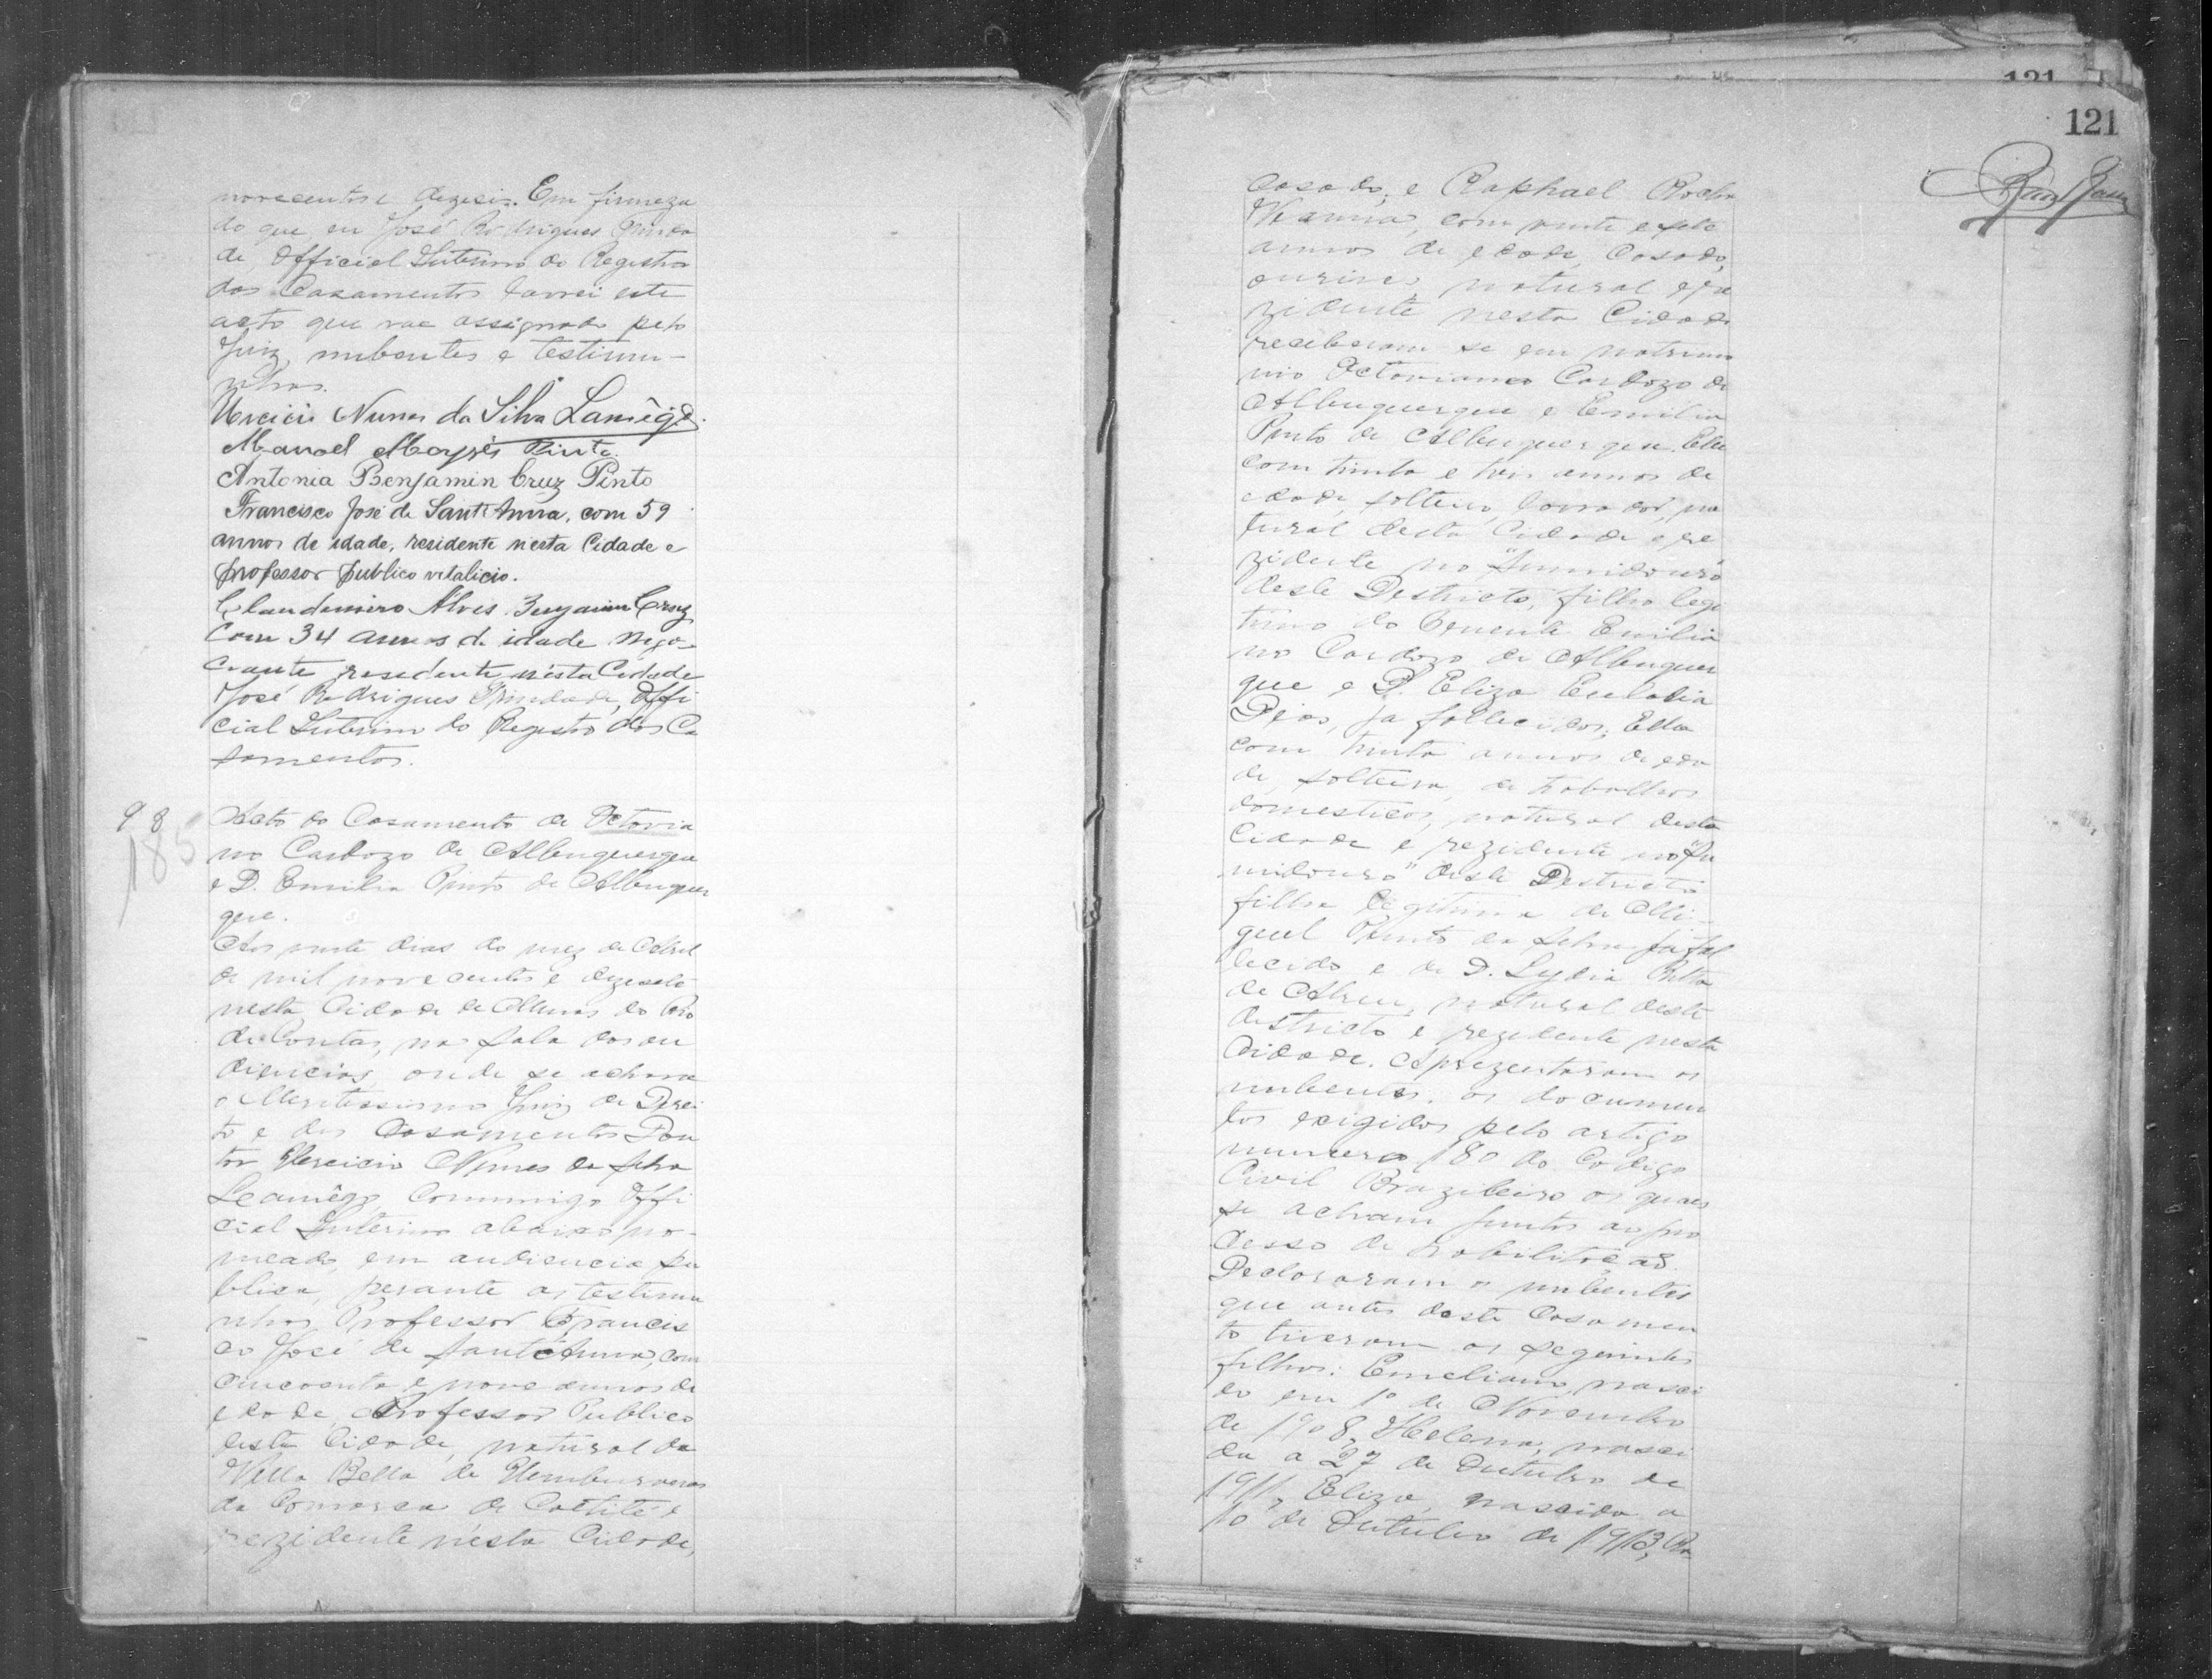 novecentos e dezeseis. Em firmeza
do que eu José Rodrigues Trinda
de Official Interino do Registro
dos Casamentos lavrei este
acto que vae assignado pelo
Juiz, nubentes e testimu-
nhas.
Nunes da Silva Lamêgo.
Manoel Moysés Pinto.
Antonia Benjamin Cruz Pinto
Francisco José de Sant'Anna, com 59
annos de idade, residente nesta Cidade e
professor publico vitalicio.
Claudemiro Alves Benjamin Cruz
Com 34 annos de idade nego-
ciante residente nésta Cidade
José Rodrigues Trindade, Offi
cial Interino do Registro dos Ca
samentos.
98
185
Acto do Casamento de Octavia
no Cardozo de Albuquerque
e D. Emilia Pinto de Albuquer
que.
Aos vinte dias do mez de Abril
de mil novecentos e dezesete
nesta Cidade de Minas do Rio
de Contas, na sala das au
diencias, onde se achava
o Meritissimo Juiz de Direi
to e dos Casamentos Dou
tor Nunes da Silva
Lamêgo, Commigo Offi
cial Interino abaixo no-
meado, em audiencia pu
blica, perante as testemu
nhas Professor Francis
co José de Sant'Anna, com
cincoenta e nove annos de
edade, Professor Publico
desta Cidade, natural da
Villa Bella de Umburanas
da Comarca de Caetité e
rezidente nésta Cidade,
121
121
casado, e Raphael Rocha
Vianna, com vinte e sete
annos de edade, Casado,
ourives, natural e re
zidente nesta Cidade
receberam se em matrimo
nio Octaviano Cardozo de
Albuquerque e Emilia
Pinto de Albuquerque. Elle
com trinta e tres annos de
edade, solteiro, lavrador, na
tural desta Cidade e re
zidente no "Sumidouro"
deste Destricto, filho legi
timo do Tenente Emilia
no Cardozo de Albuquer
que e D. Eliza Eulalia
Dias, ja fallecidos; Ella
com trinta annos de eda
de, solteira, de trabalhos
domesticos, natural desta
Cidade e rezidente no "Su
midouro" deste Destricto
filha legitima de Mi-
guel Pinto da Silva ja fal
lecido e de D. Lydia
de Abreu, natural deste
destricto e rezidente nesta
Cidade. Aprezentaram os
nubentes os documen
tos exigidos pelo artigo
numero 180 do Codigo
Civil Brazileiro os quaes
se acham juntos ao pro
cesso de habilitação.
Declararam os nubentes
que antes deste Casamen
to tiveram os seguintes
filhos: Emeliano, nasci
do em 1º de Novembro
de 1908, Helena, nasci
da a 27 de Outubro de
1911, Eliza, nascida a
10 de Outubro de 1913,